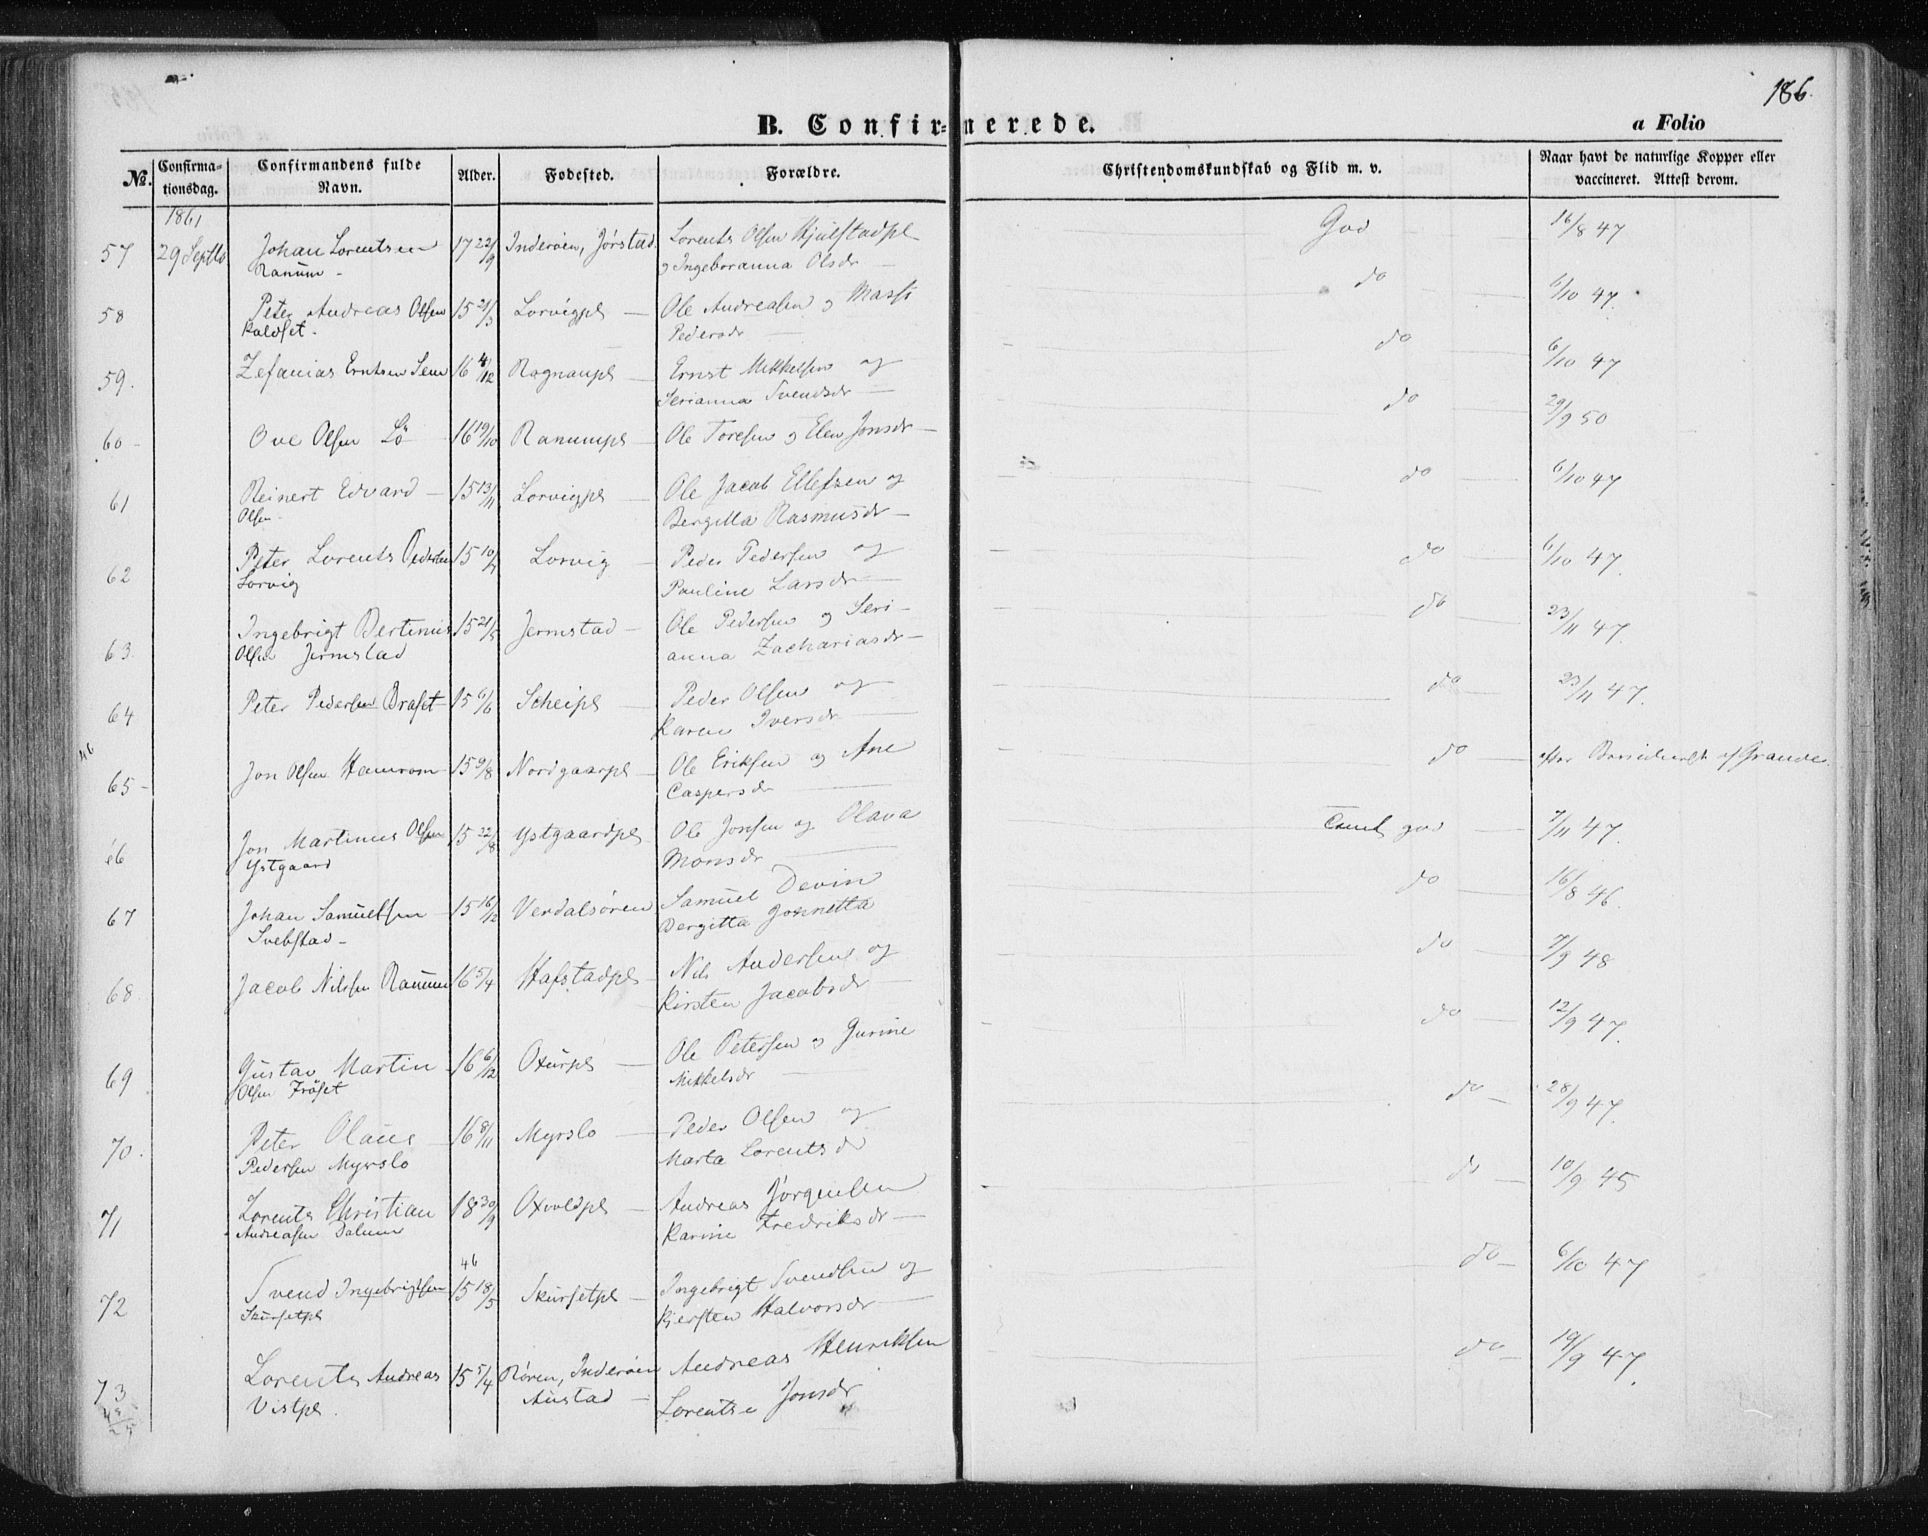 186.
B. Confirmerede.
a Folio
№. Confirmationsdag. Confirmandens fulde Navn. Alder. Fødested. Forældre. Christendomskundskab og Flid m. v. Naar havt de naturlige Kopper eller vaccineret. Attest derom.
1861
57 29 Septbr Johan Lorentsen 17 22/9 Inderøen, Jørstad Lorents Olsen Hjulstadpl God 16/8 47
Ranum - og Ingeboranna Olsdr
58 Peter Andreas Olsen 15 21/3 Lorvigpl Ole Andreasen og Massi do 6/10 47.
Kaldset - Pedersdr
59. Zefanias Erntsen Sem 16 4/12 Rognanpl Ernst Mikkelsen og do 6/10 47
Serianna Svendsdr
60 - Ove Olsen Lö 16 19/10 Ranumpl Ole Toresen og Elen Jonsdr do 29/9 50
61 Reinert Edvard 15 13/11 Lorvigpl Ole Jacob Ellefsen og do 6/10 47
Olsen - Bergitta Rasmusdr
62 Peter Lorents Pedersen 15 10/7 Lorvig Peder Pedersen og do 6/10 47.
Lorvig Pauline Larsdr
63. Ingebrigt Bertinius 15 21/5 Jermstad Ole Pedersen og Seri- do 23/11 47.
Olsen Jermstad anna Zachariasdr
64 Peter Pedersen Braset 15 6/6 Scheipl Peder Olsen og do 23/11 47.
Karen Iversdr
46
65 - Jon Olsen Hamrom 15 9/8 Nordgaarpl Ole Eriksen og Ane do
Caspersdr
66 Jon Martinus Olsen 15 22/8 Ystgaardpl Ole Jonsen og Olava god 7/11 47.
Ystgaard Monsdr
67 Johan Samuelsen 15 16/12 Verdalsøren Samuel Devin do 16/8 46.
Svebstad - Bergitta Jonnetta
68 Jacob Nilssen Ranum 16 5/4 Hafstadpl Nils Andersen og do 7/9 48
Kirsten Jacobsdr
69 Gustav Martin 16 6/12 Oxurpl Ole Petersen og Gurine do 12/9 47.
Olsen Fröset Mikkelsdr
70. Peter Olaus 16 8/11 Myrslo Peder Olsen og do 28/9 47.
Pedersen Myrslo Marta Lorentsdr
71 Lorents Christian 18 30/9 Oxvoldpl Andreas Jørgensen do 10/9 45
Andreasen Dalum Karine Fredriksdr
46
72 Svend Ingebrigtsen 15 18/5 Skursetpl Ingebrigt Svendsen og do 6/10 47
Skursetpl Kjersten Halvorsdr
73 Lorents Andreas 15 5/4 Røren, Inderøen Andreas Henriksen do 19/9 47.
Vistpl. Austad Lorentse Jonsdr